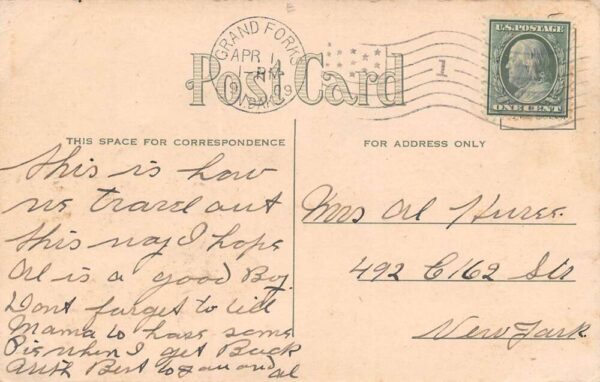 GRAND FORKS
APR 1
1-PM
N.DAK.
Post Card
1
U.S. POSTAGE
ONE CENT
THIS SPACE FOR CORRESPONDENCE
FOR ADDRESS ONLY
This is how
we travel out
this way I hope
Al is a good Boy
Dont forget to tell
Mama to have some
Pie when I get Back
With Best to you and Al
Mrs Al
492 E 162 Str
New York